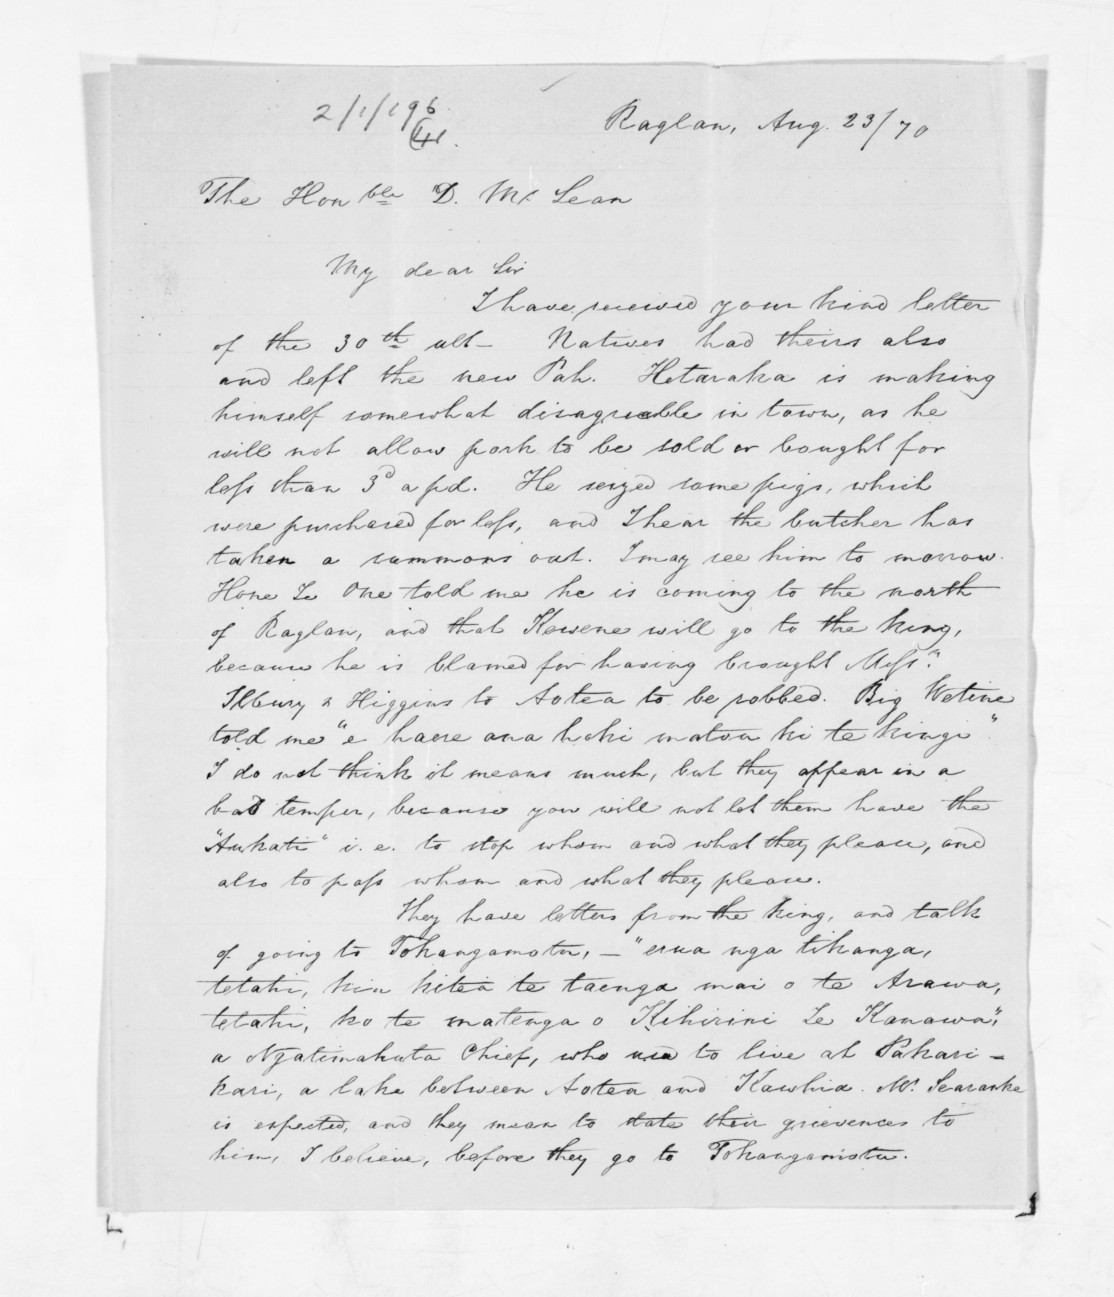 2/1/196
41.
Raglan, Aug. 23/70
The Honble D. Mc Lean
My dear Sir
I have received your kind letter
of the 30th ult— Natives had theirs also
and left the new Pah. Hetaraka is making
himself somewhat disagreeable in town, as he
will not allow pork to be sold or bought for
less than 3d a pd. He seized some pigs, which
were purchased for less, and I hear the butcher has
taken a summons out. I may see him to morrow.
Hone Te One told me he is coming to the north
of Raglan, and that Kewene will go to the King,
because he is blamed for having brought Messrs
Ilbury & Higgins to Aotea to be robbed. Big Wetine
told me "e haere ana hoki matou ki te kingi".
I do not think it means much, but they appear in a
bad temper, because you will not let them have the
"Aukati" i.e. to stop whom and what they please, and
also to pass whom and what they please.
They have letters from the King, and talk
of going to Tokangamotu, — "erua nga tikanga,
tetahi, kia kitea te taenga mai o te Arawa,
tetahi, ko te matenga o Kihirini Te Kanawa",
a Ngatimahuta Chief, who used to live at Pakari-
kari, a lake between Aotea and Kawhia. Mr. Searanke
is expected, and they mean to state their grievences to
him, I believe, before they go to Tokangamotu.